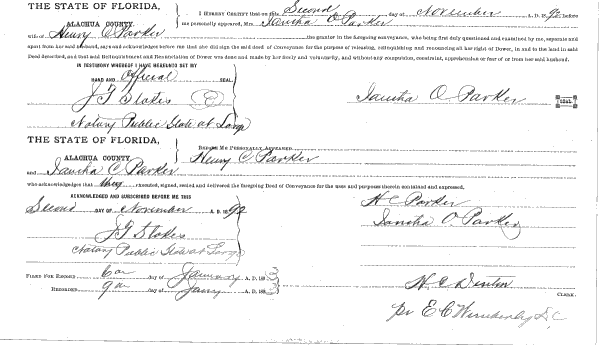 THE STATE OF FLORIDA,
ALACHUA COUNTY.
I HEREBY CERTIFY that on this Second day of November A. D. 1892 before
me personally appeared, Mrs. Iantha O Parker
wife of Henry C Parker the grantor in the foregoing conveyance, who being first duly questioned and examined by me, separate and
apart from her said husband, says and acknowledges before me that she did sign the said deed of Conveyance for the purpose of releasing, relinquishing and renouncing all her right of Dower, in and to the land in said
Deed described, and that said Relinquishment and Renunciation of Dower was done and made by her freely and voluntarily, and without any compulsion, constraint, apprehension or fear of or from her said husband.
IN TESTIMONY WHEREOF I HAVE HEREUNTO SET MY
HAND AND Official SEAL
J T Stokes
Iantha O Parker SEAL
Notary Public State at Large
THE STATE OF FLORIDA,
ALACHUA COUNTY.
BEFORE ME PERSONALLY APPEARED
Henry C Parker
and Iantha C Parker
who acknowledges that they executed, signed, sealed and delivered the foregoing Deed of Conveyance for the uses and purposes therein contained and expressed.
ACKNOWLEDGED AND SUBSCRIBED BEFORE ME THIS
H C Parker
Second DAY OF November A. D. 1892
Iantha O. Parker
J T Stokes
Notary Public State at Large
FILED FOR RECORD 6 day of January A. D. 189
RECORDED 9 day of Jany A. D. 189
CLERK.
pr E C
D. C